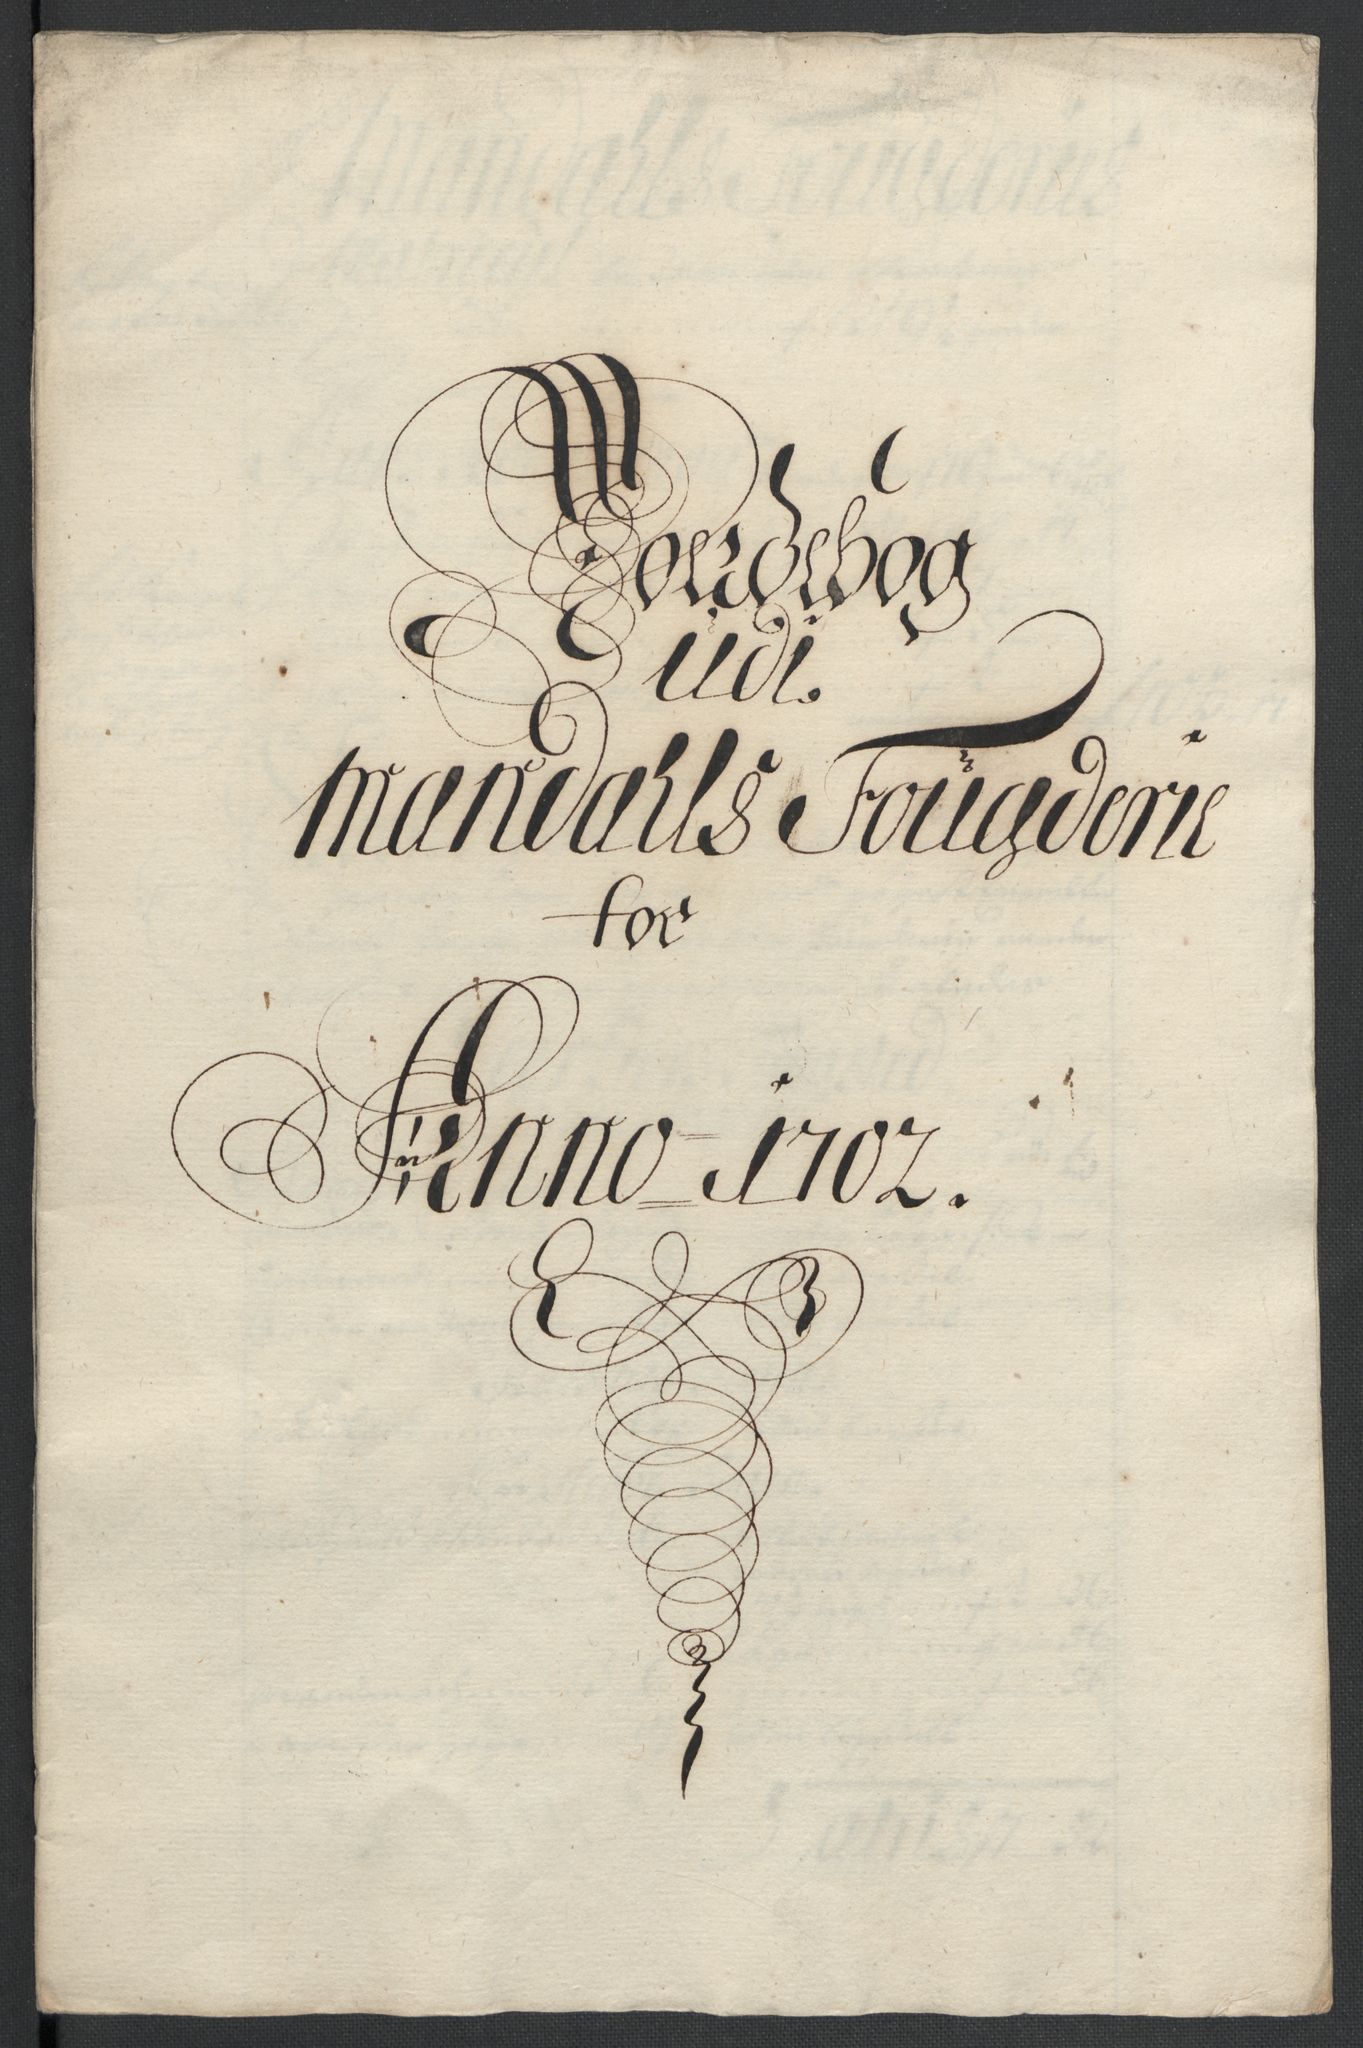 Jordebog
udi.
Mandahls Fougderie
for
Anno = 1702.